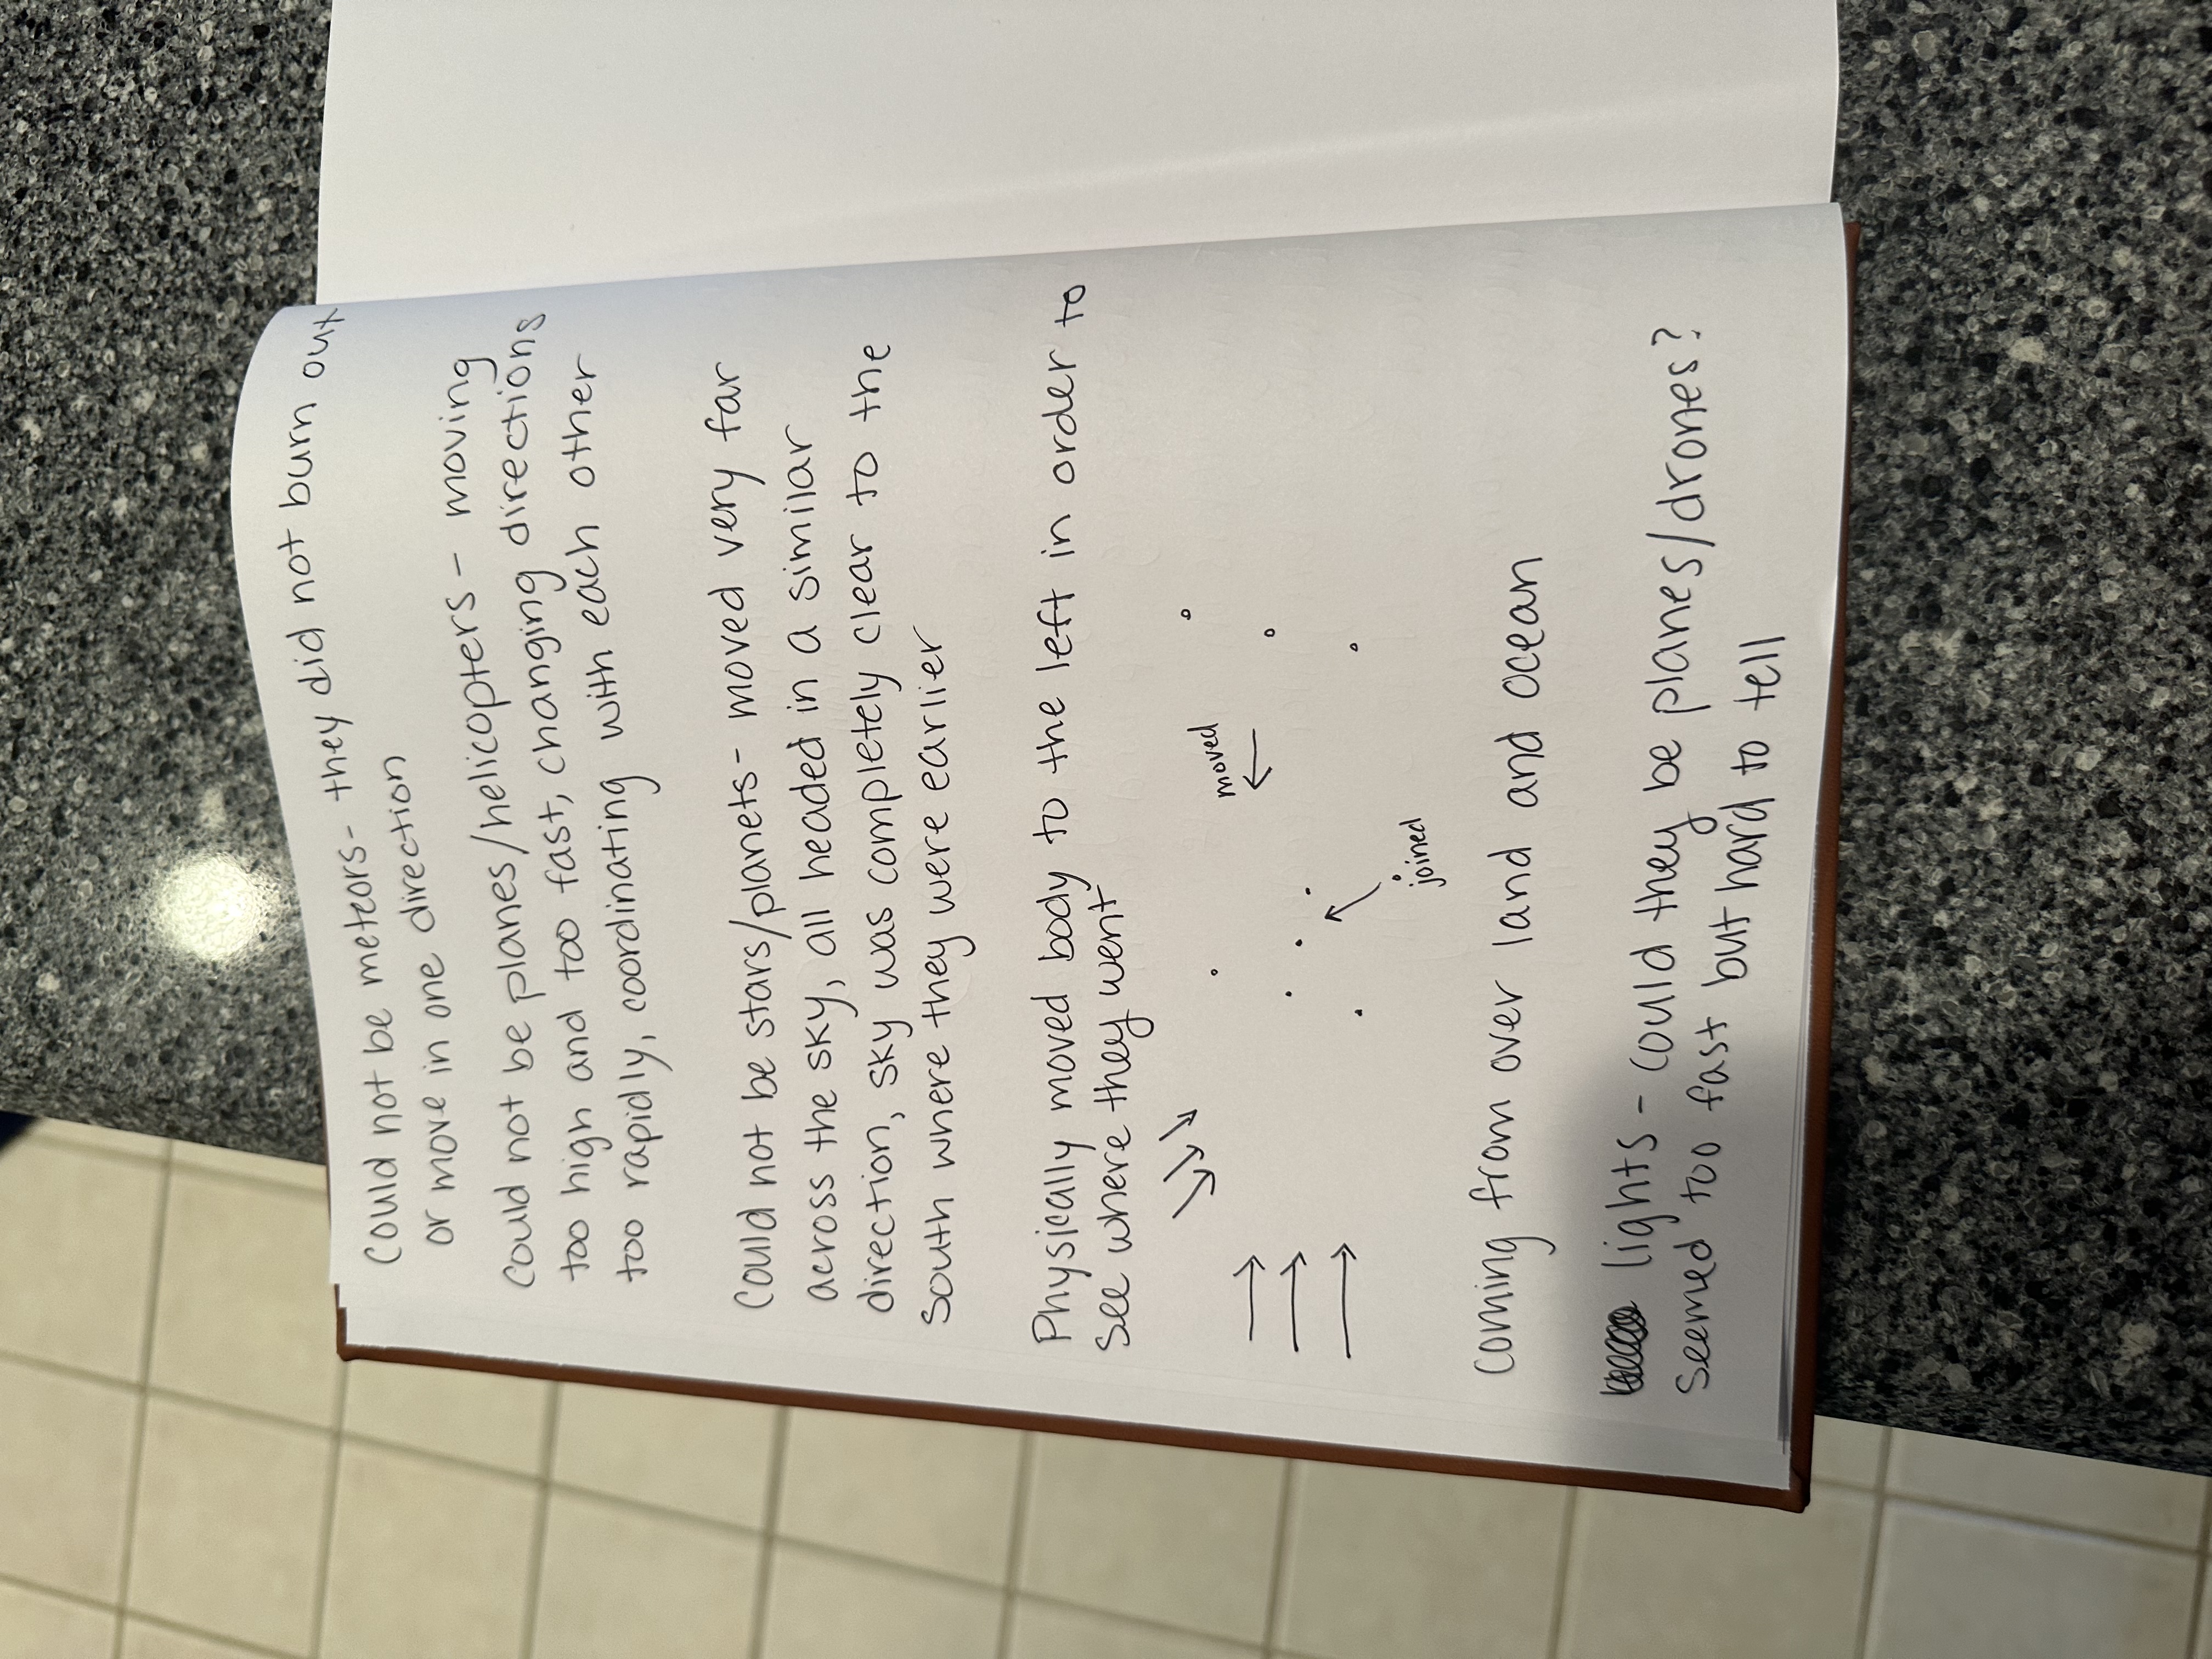 Could not be meteors - they did not burn out
or move in one direction
Could not be planes/helicopters - moving
too high and too fast, changing directions
too rapidly, coordinating with each other
Could not be stars/planets - moved very far
across the sky, all headed in a similar
direction, sky was completely clear to the
South where they were earlier
Physically moved body to the left in order to
see where they went
moved
joined
Coming from over land and ocean
lights - could they be planes/drones?
Seemed too fast but hard to tell